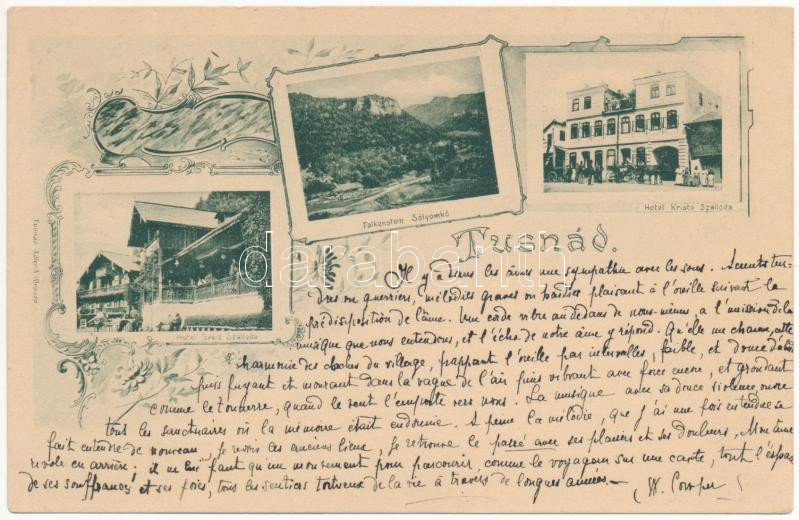 Falkenstein Sólyomkő
Hotel Kristó Szálloda
Hotel Szálloda
Tusnád.
darabanth
Il y a dans les âmes une sympathie avec les sons. Accents ten-
dres ou guerriers, mélodies graves ou hardies plaisant à l'oreille suivant la
prédisposition de l'âme. Une corde vibre au dedans de nous-mêmes, à l'unisson de la
musique que nous entendons, et l'écho de notre âme y répond. Qu'elle me charme, cette
harmonie des cloches du village, frappant l'oreille par intervalles, faible, et douce d'abord
puis fuyant et mourant dans la vague de l'air puis vibrant avec force encore, et grondant
comme le tonnerre, quand le vent l'emporte vers nous. La musique avec sa douce violence ouvre
tous les sanctuaires où la mémoire était endormie. A peine la mélodie, que j'ai une fois entendue se
fait entendre de nouveau, je revois les anciens lieux, je retrouve le passé avec ses plaisirs et ses douleurs. Mon âme
revole en arrière: il ne lui faut qu'un mouvement pour parcourir, comme le voyageur sur une carte, tout l'espa-
de ses souffrances et ses joies, tous les sentiers tortueux de la vie à travers de longues années. —
W. Cowper